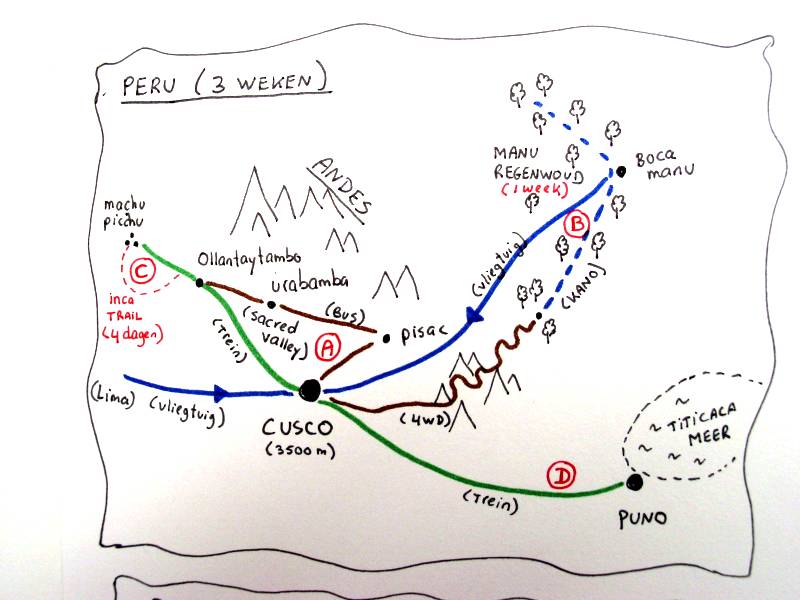 PERU (3 WEKEN)
ANDES
MANU
REGENWOUD
(1 week)
BOCA
manu
machu
picchu
Ollantaytambo
urabamba
(Bus)
(sacred
valley)
pisac
A
B
C
inca
TRAIL
(4 dagen)
(Trein)
(vliegtuig)
(KANO)
(Lima) (vliegtuig)
CUSCO
(3500 m)
(4WD)
TITICACA
MEER
D
(Trein)
PUNO